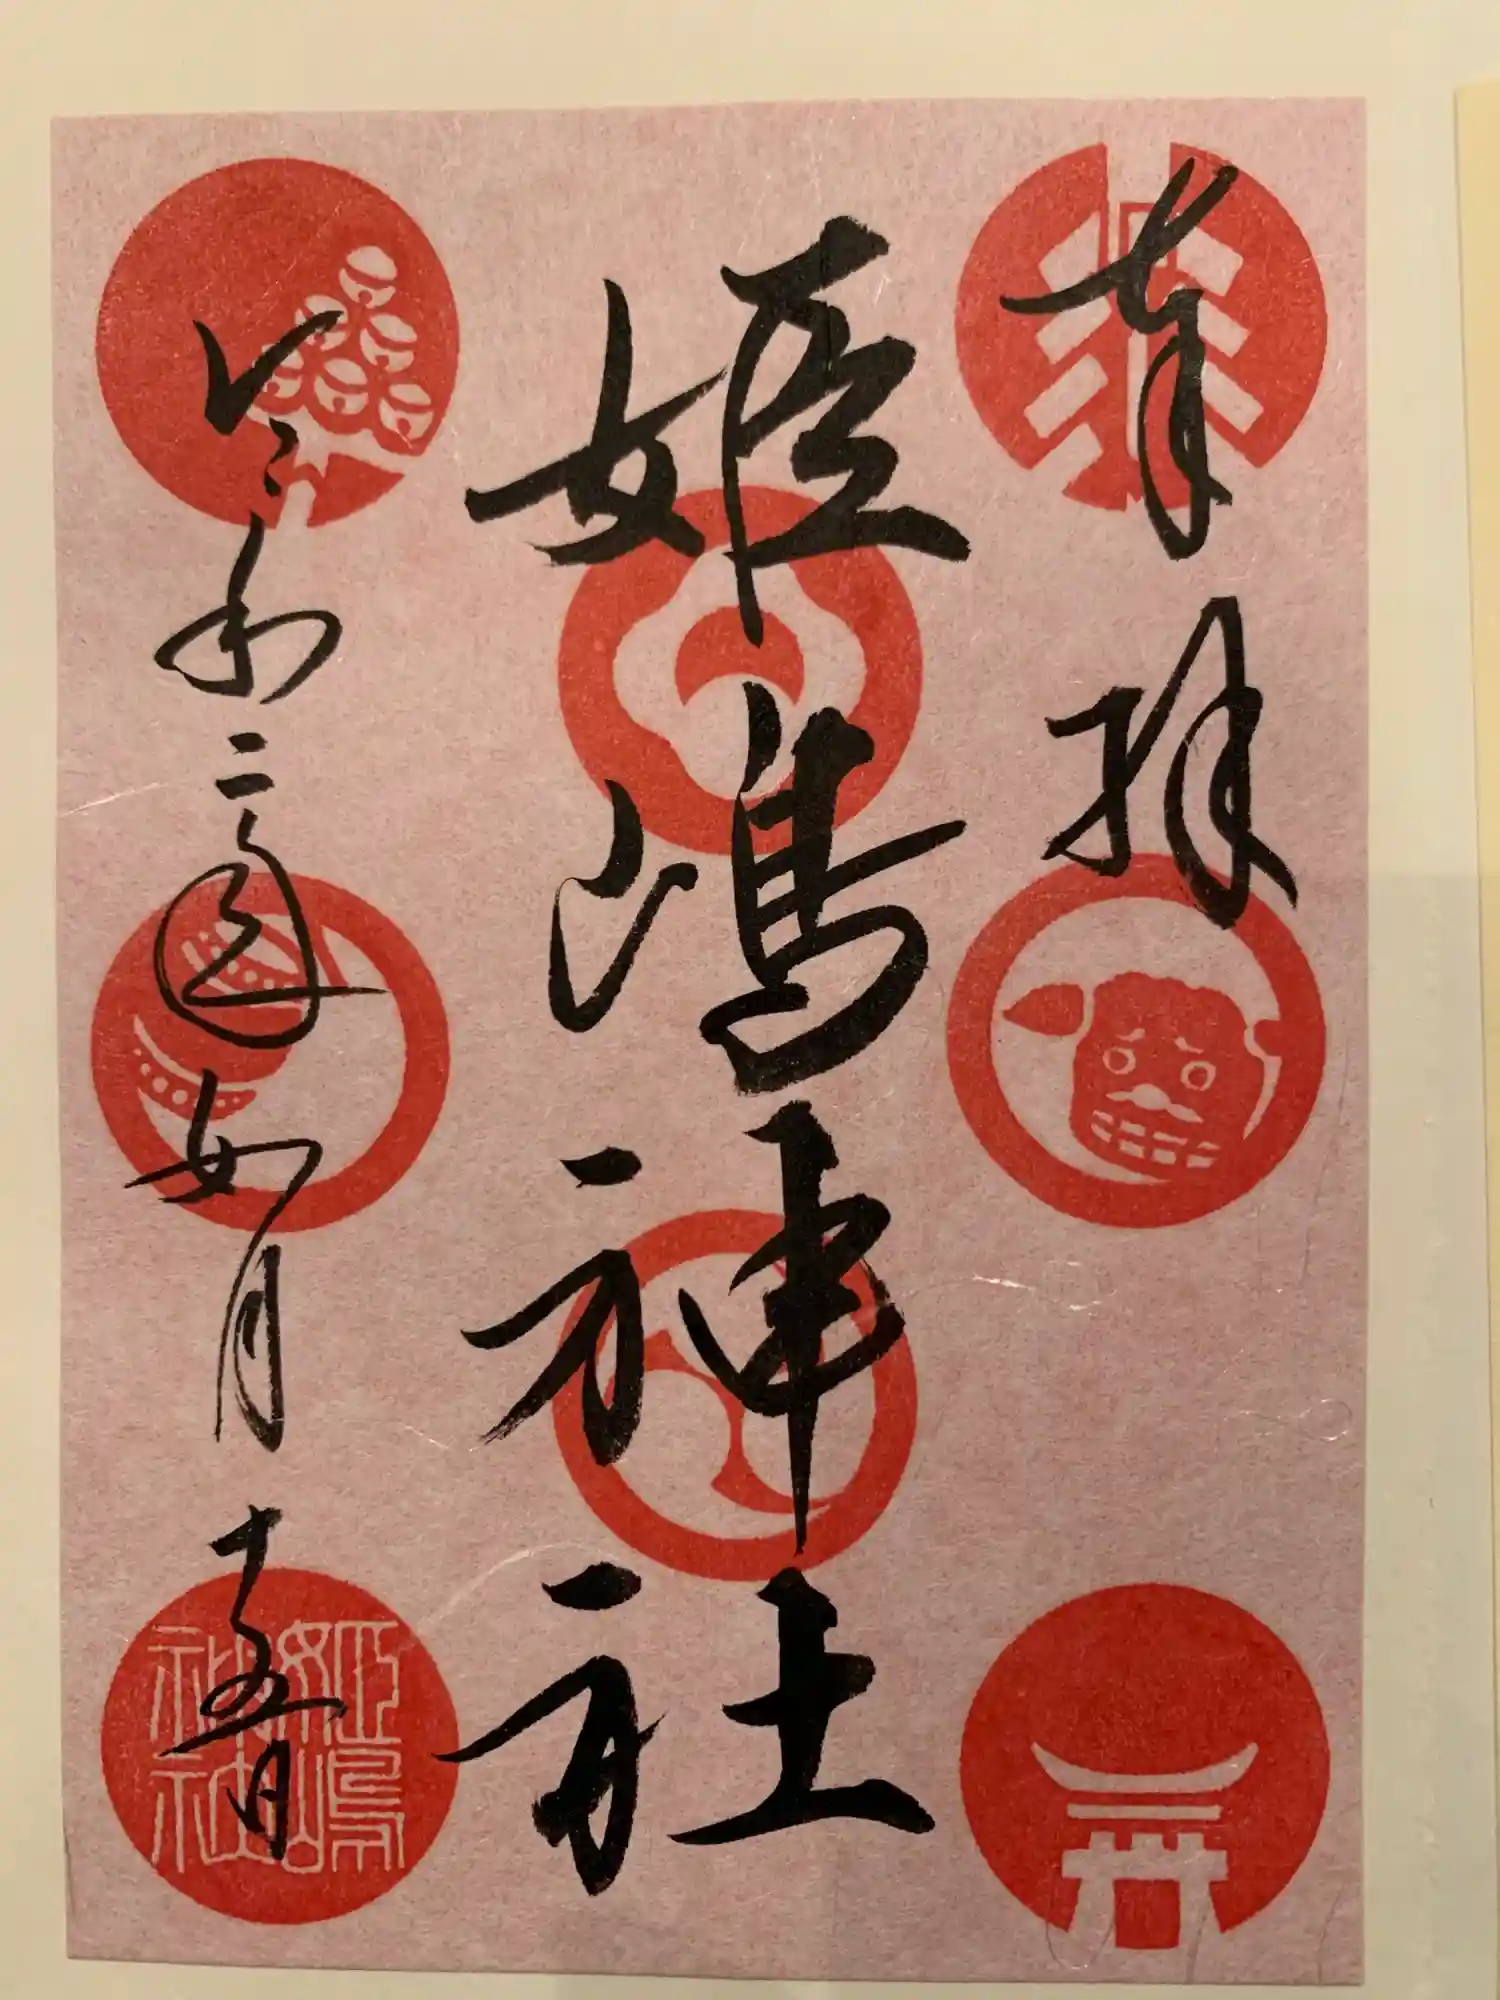 奉拝
姫嶋神社
令和二歳如月十五日
姫嶋
神社